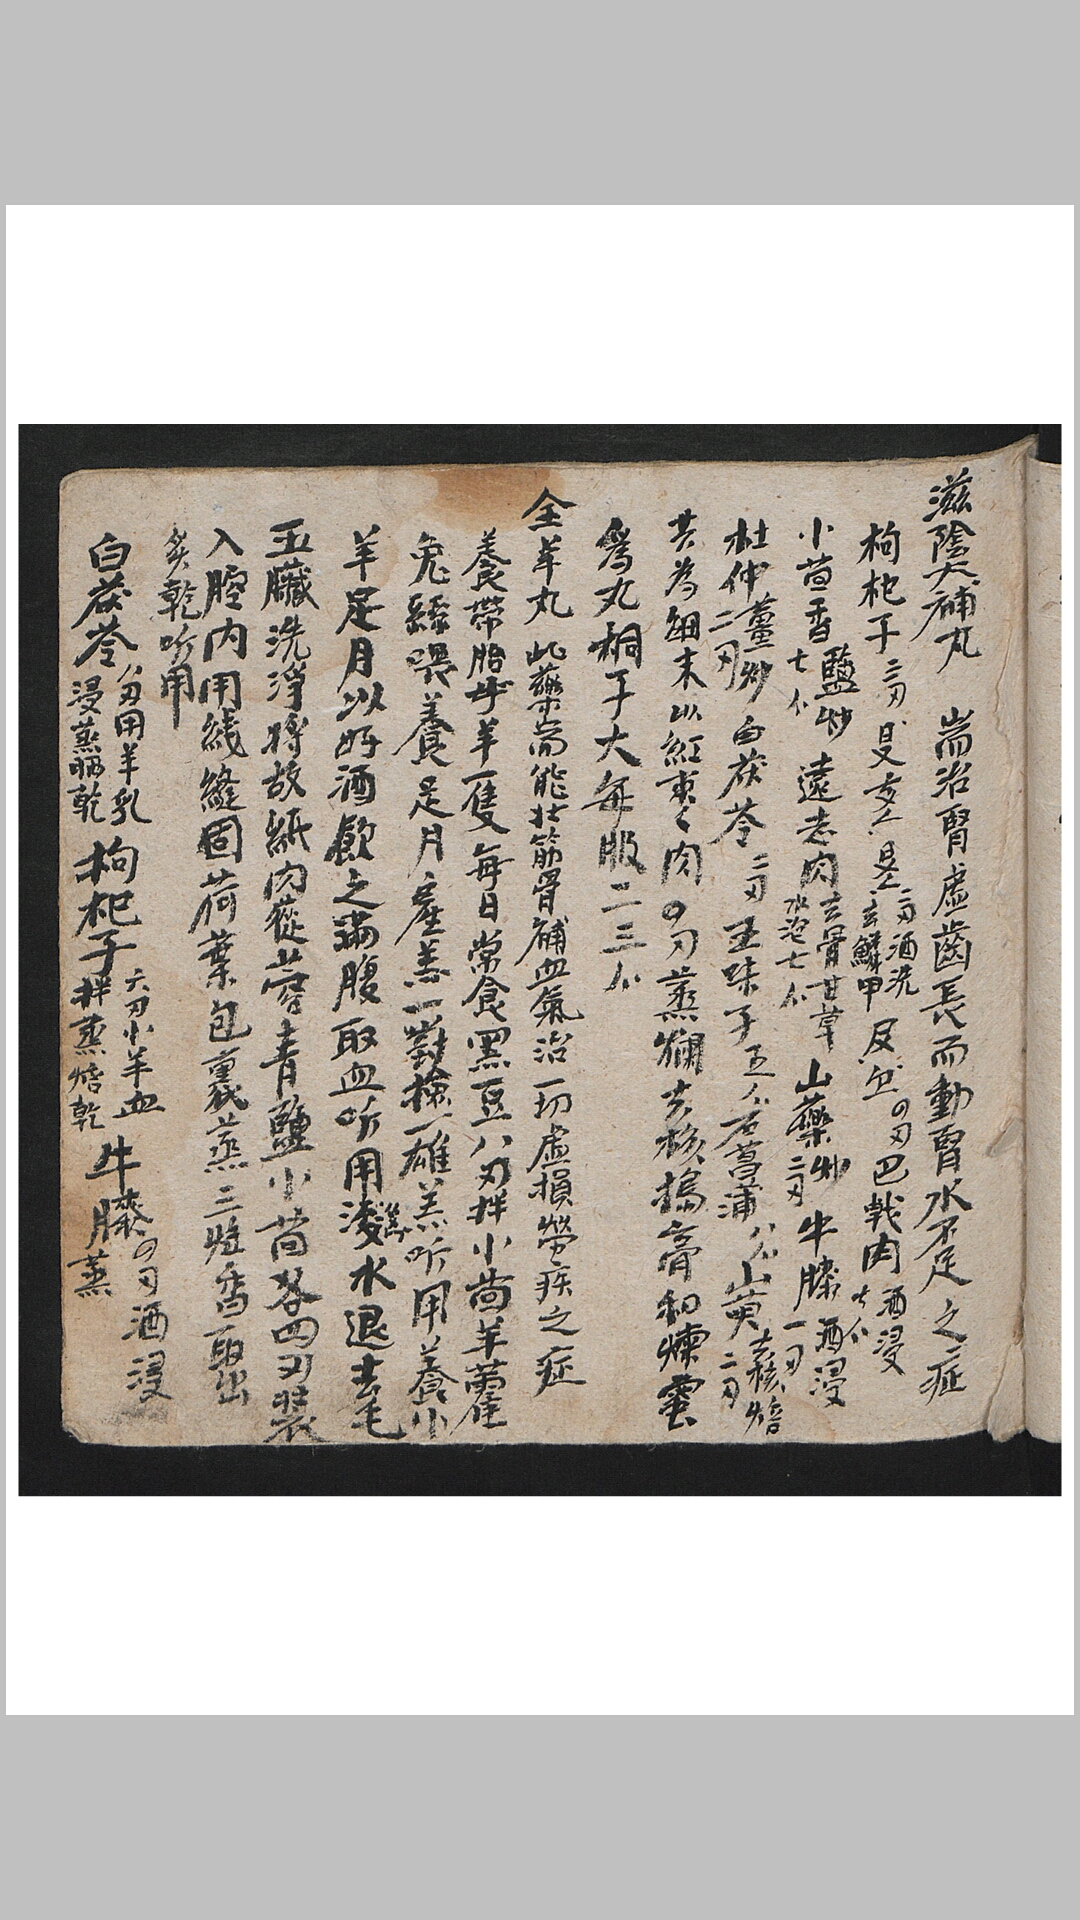 滋陰大補丸　耑治腎虛齒長而動腎水不足之症
枸杞子二刃　二刃酒洗去鱗甲　四刃巴戟肉酒浸七分
小茴香鹽炒七分　遠志肉去骨甘草水泡七分　山藥炒二刃　牛膝酒浸一刃
杜仲薑炒二刃　白茯苓二刃　五味子五分　石菖蒲八分　山萸去核焙二刃
共為細末以紅棗肉四刃蒸爛去核搗膏和煉蜜
為丸桐子大每服二三分
全羊丸　此藥耑能壯筋骨補血氣治一切虛損勞疾之症
養帶胎羊一隻每日常食黑豆八刃拌小茴羊藿
兔絲喂養足月產羔一對揀一雄羔听用養小
羊足月以好酒飲之滿腹取血听用滾水退去毛
五臟洗淨將故紙肉蓯蓉青鹽小茴各四刃裝
入腔內用綫縫固荷葉包裹蒸三炷香取出
炙乾听用
白茯苓八刃用羊乳浸蒸晒乾　枸杞子六刃小羊血拌蒸焙乾　牛膝四刃酒浸蒸